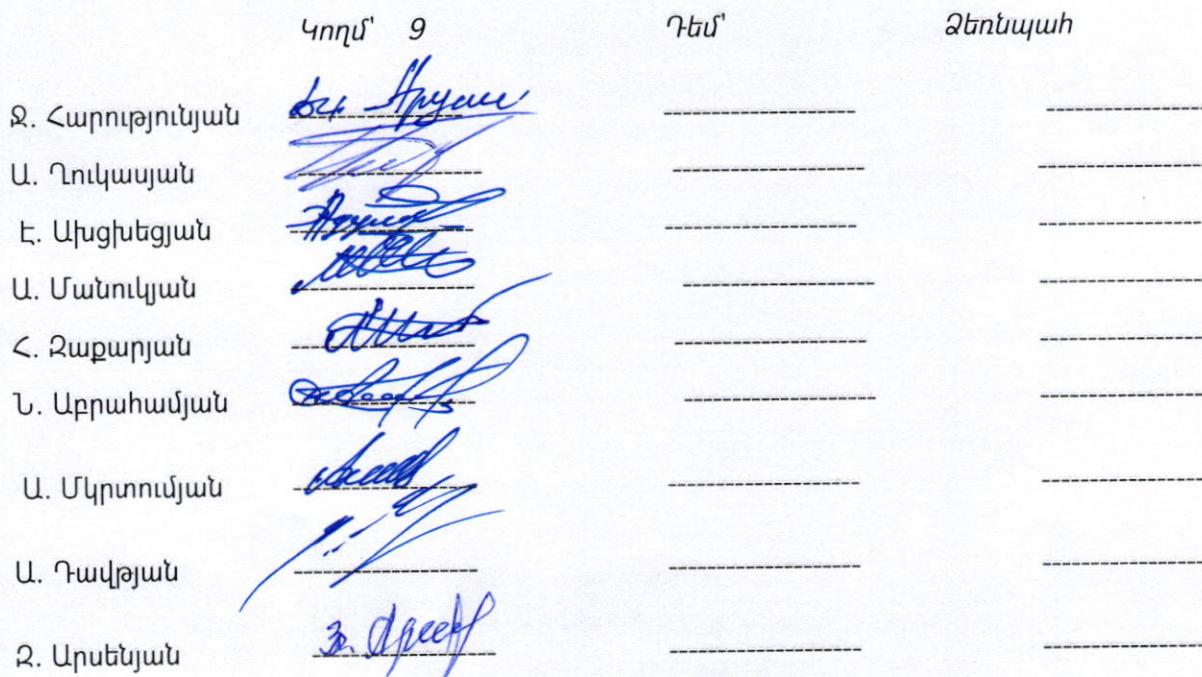 Կողմ՝ 9 Դեմ՝ Ձեռնպահ
Ջ. Հարությունյան
Ա. Ղուկասյան
Է. Ախցխեցյան
Ա. Մանուկյան
Հ. Զաքարյան
Ն. Աբրահամյան
Ա. Մկրտումյան
Ա. Դավթյան
Զ. Արսենյան